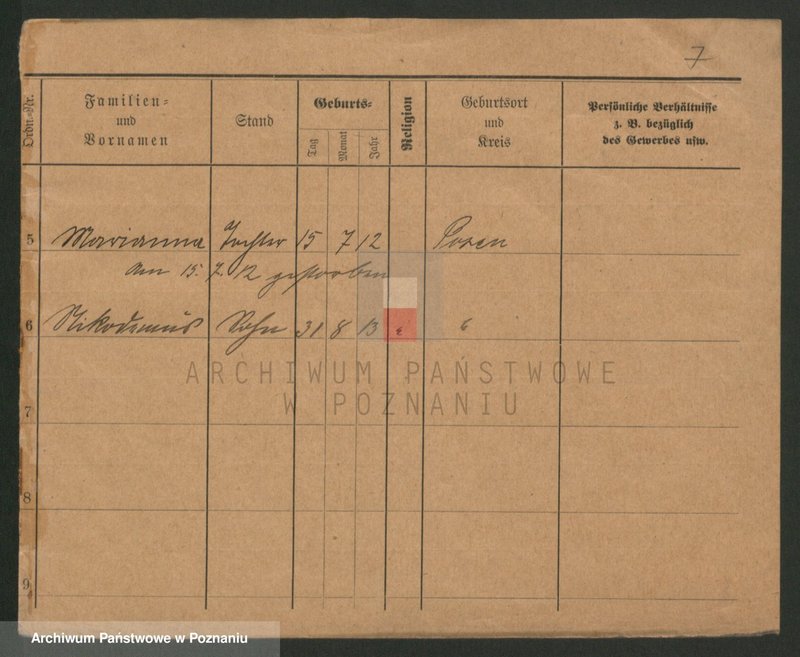 7
Ordn.-Nr.
Familien- und Vornamen
Stand
Geburts-
Tag
Monat
Jahr
Religion
Geburtsort und Kreis
Persönliche Verhältnisse z. B. bezüglich des Gewerbes usw.
5 Marianna Tochter 15 7 12 Posen
am 15. 7. 12 gestorben
6 Nikodemus Sohn 31 8 13 " "
ARCHIWUM PAŃSTWOWE
W POZNANIU
7
8
9
Archiwum Państwowe w Poznaniu